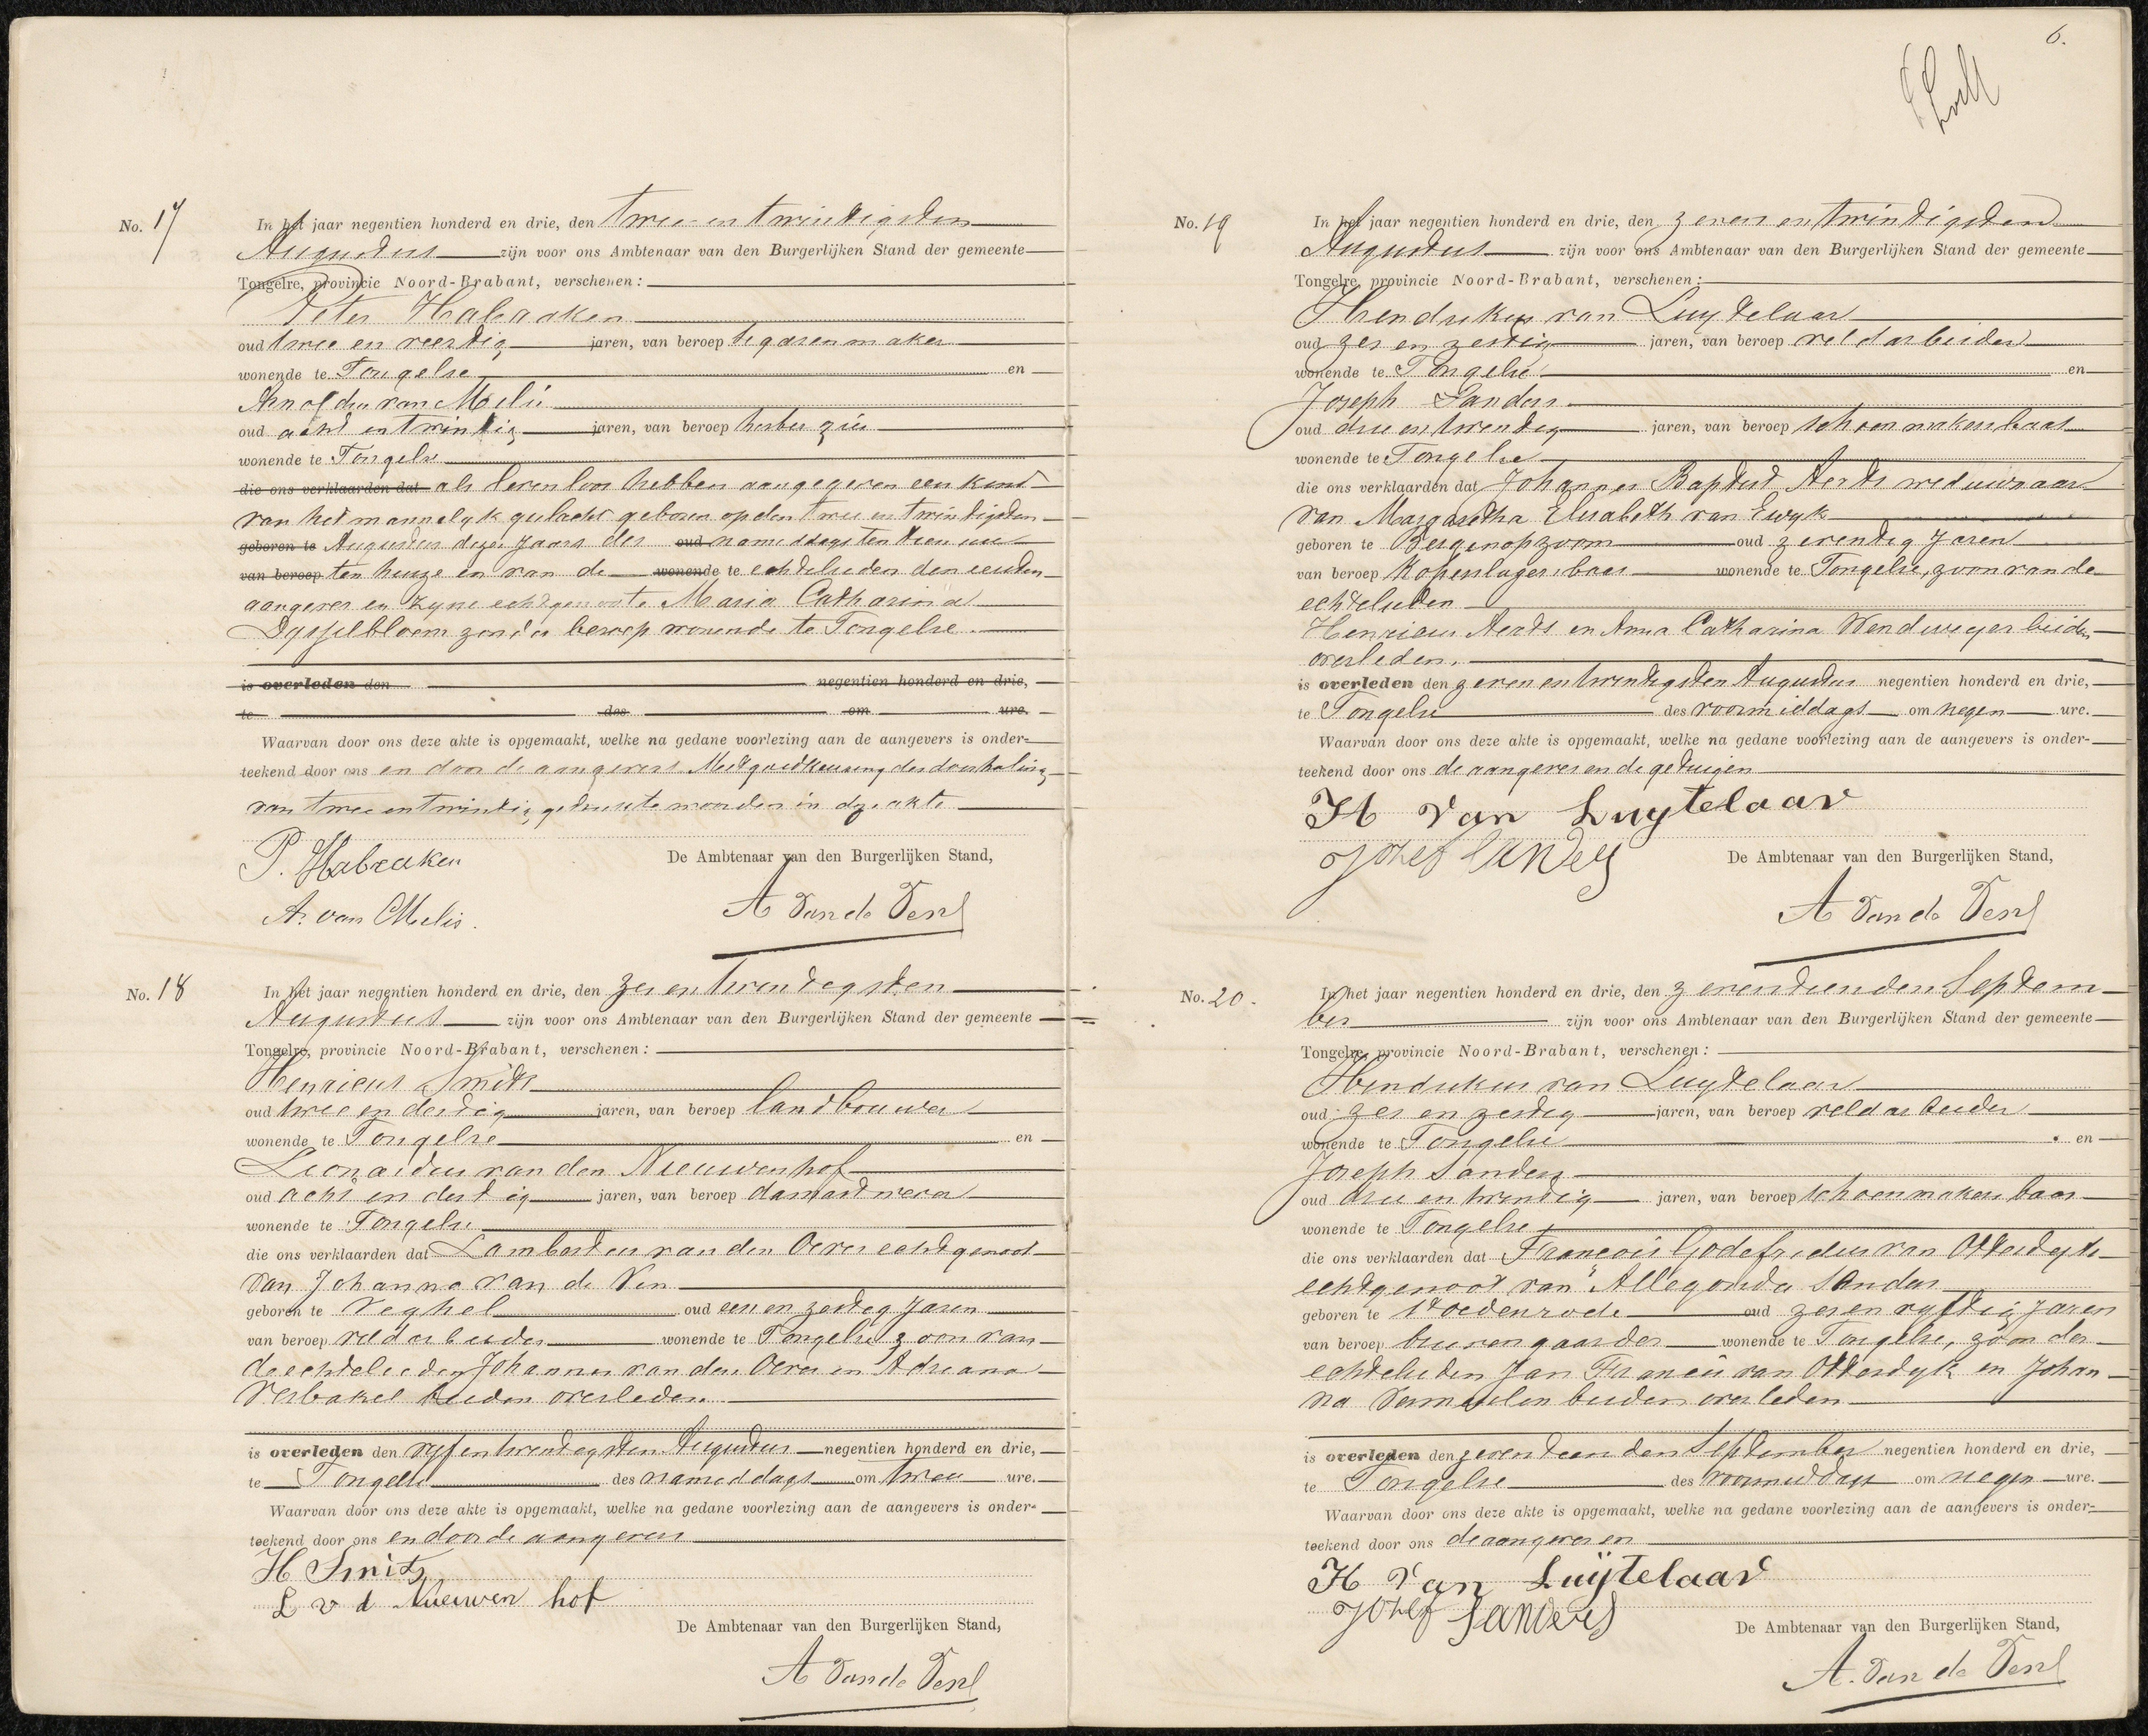 No. 17
In het jaar negentien honderd en drie, den twee en twintigsten
Augustus zijn voor ons Ambtenaar van den Burgerlijken Stand der gemeente
Tongelre, provincie Noord-Brabant, verschenen:
Peter Habraken
oud twee en veertig jaren, van beroep sigarenmaker
wonende te Tongelre en
Arnoldus van Melis
oud acht en twintig jaren, van beroep herbergier
wonende te Tongelre
die ons verklaarden dat als levenloos hebben aangegeven een kind
van het mannelyk geslacht geboren op den twee en twintigsten
geboren te Augustus dezes jaars des oud namiddags ten een ure
van beroep ten huize en van de wonende te echtelieden den eersten
aangever en zyne echtgenoote Maria Catharina
Dysselbloem zonder beroep wonende te Tongelre.
is overleden den negentien honderd en drie,
te des om ure.
Waarvan door ons deze akte is opgemaakt, welke na gedane voorlezing aan de aangevers is onder-
teekend door ons en door de aangevers. Met goedkeuring der doorhaling
van twee en twintig gedrukte woorden in deze akte
P. Habraken
De Ambtenaar van den Burgerlijken Stand,
A. van Melis.
A van de Ven
No. 18
In het jaar negentien honderd en drie, den zes en twintigsten
Augustus zijn voor ons Ambtenaar van den Burgerlijken Stand der gemeente
Tongelre, provincie Noord-Brabant, verschenen:
Henricus Smits
oud twee en dertig jaren, van beroep landbouwer
wonende te Tongelre en
Leonardus van den Nieuwenhof
oud acht en dertig jaren, van beroep damastwever
wonende te Tongelre
die ons verklaarden dat Lambertus van den Oever echtgenoot
van Johanna van de Ven
geboren te Veghel oud een en zestig Jaren
van beroep veldarbeider wonende te Tongelre zoon van
de echtelieden Johannes van den Oever en Adriana
Verbakel beiden overleden.
is overleden den vyf en twintigsten Augustus negentien honderd en drie,
te Tongelre des namiddags om twee ure.
Waarvan door ons deze akte is opgemaakt, welke na gedane voorlezing aan de aangevers is onder-
teekend door ons en door de aangevers
H Smits
L v d Nieuwen hof
De Ambtenaar van den Burgerlijken Stand,
A van de Ven
6.
No. 19
In het jaar negentien honderd en drie, den zeven en twintigsten
Augustus zijn voor ons Ambtenaar van den Burgerlijken Stand der gemeente
Tongelre, provincie Noord-Brabant, verschenen:
Hendrikus van Luytelaar
oud zes en zestig jaren, van beroep veldarbeider
wonende te Tongelre en
Joseph Sanders
oud drie en twintig jaren, van beroep schoenmakersbaas
wonende te Tongelre
die ons verklaarden dat Johannes Baptist Aerts weduwnaar
van Margaretha Elisabeth van Ewyk
geboren te Bergenopzoom oud zeventig Jaren
van beroep Koperslagersbaas wonende te Tongelre, zoon van de
echtelieden
Henricus Aerts en Anna Catharina Wendweyer beiden
overleden.
is overleden den zeven en twintigsten Augustus negentien honderd en drie,
te Tongelre des voormiddags om negen ure.
Waarvan door ons deze akte is opgemaakt, welke na gedane voorlezing aan de aangevers is onder-
teekend door ons de aangever en de getuigen
H van Luytelaar
Jozef Sanders
De Ambtenaar van den Burgerlijken Stand,
A van de Ven
No. 20.
In het jaar negentien honderd en drie, den zeventienden Septem-
ber zijn voor ons Ambtenaar van den Burgerlijken Stand der gemeente
Tongelre, provincie Noord-Brabant, verschenen:
Hendrikus van Luytelaar
oud zes en zestig jaren, van beroep veldarbeider
wonende te Tongelre en
Joseph Sanders
oud drie en twintig jaren, van beroep schoenmakersbaas
wonende te Tongelre
die ons verklaarden dat François Godefridus van Otterdyk
echtgenoot van Allegonda Sanders
geboren te St oedenrode oud zes en vyftig Jaren
van beroep wonende te Tongelre, zoon der
echtelieden Jan Francis van Otterdyk en Johan-
na Vermeulen beiden overleden
is overleden den zeventienden September negentien honderd en drie,
te Tongelre des voormiddags om negen ure.
Waarvan door ons deze akte is opgemaakt, welke na gedane voorlezing aan de aangevers is onder-
teekend door ons de aangever en
H van Luijtelaar
Jozef Sanders
De Ambtenaar van den Burgerlijken Stand,
A. van de Ven